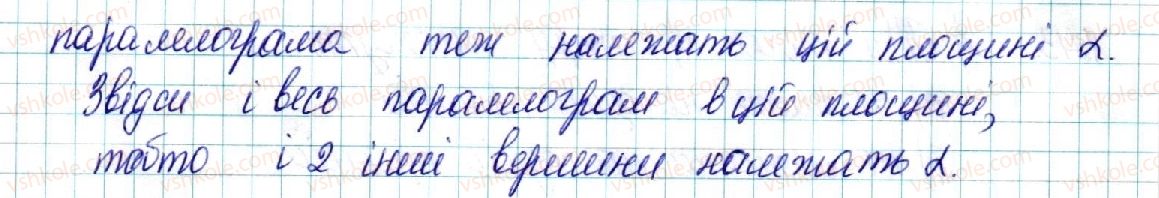 паралелограма теж належать цій площині α.
Звідси і весь паралелограм в цій площині,
тобто і 2 інші вершини належать α.